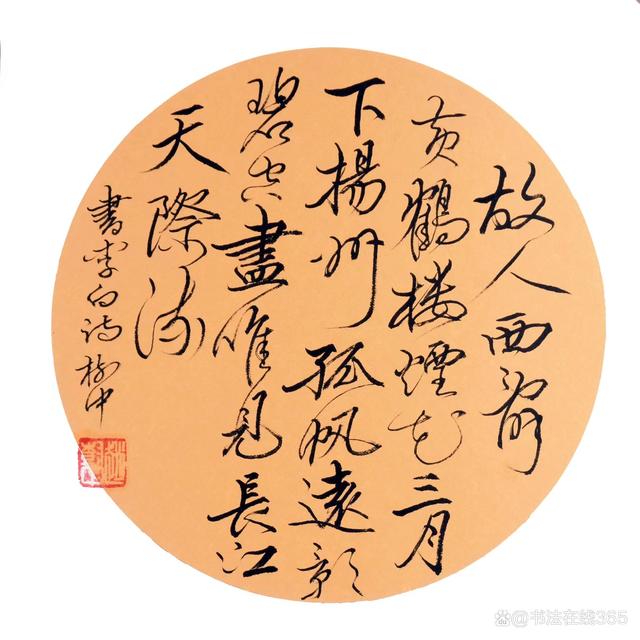 故人西辞
黄鶴楼煙花三月
下揚州孤帆遠影
碧空盡唯见長江
天際流
書李白诗
@书法在线365